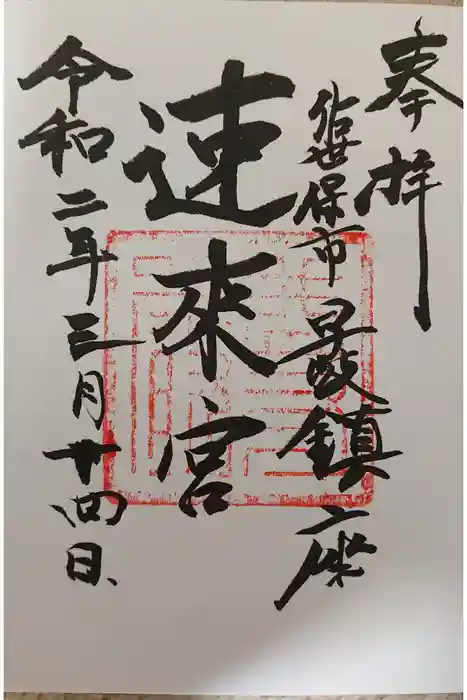 奉拝
佐世保市早岐鎮座
速来宮
令和二年三月廿四日